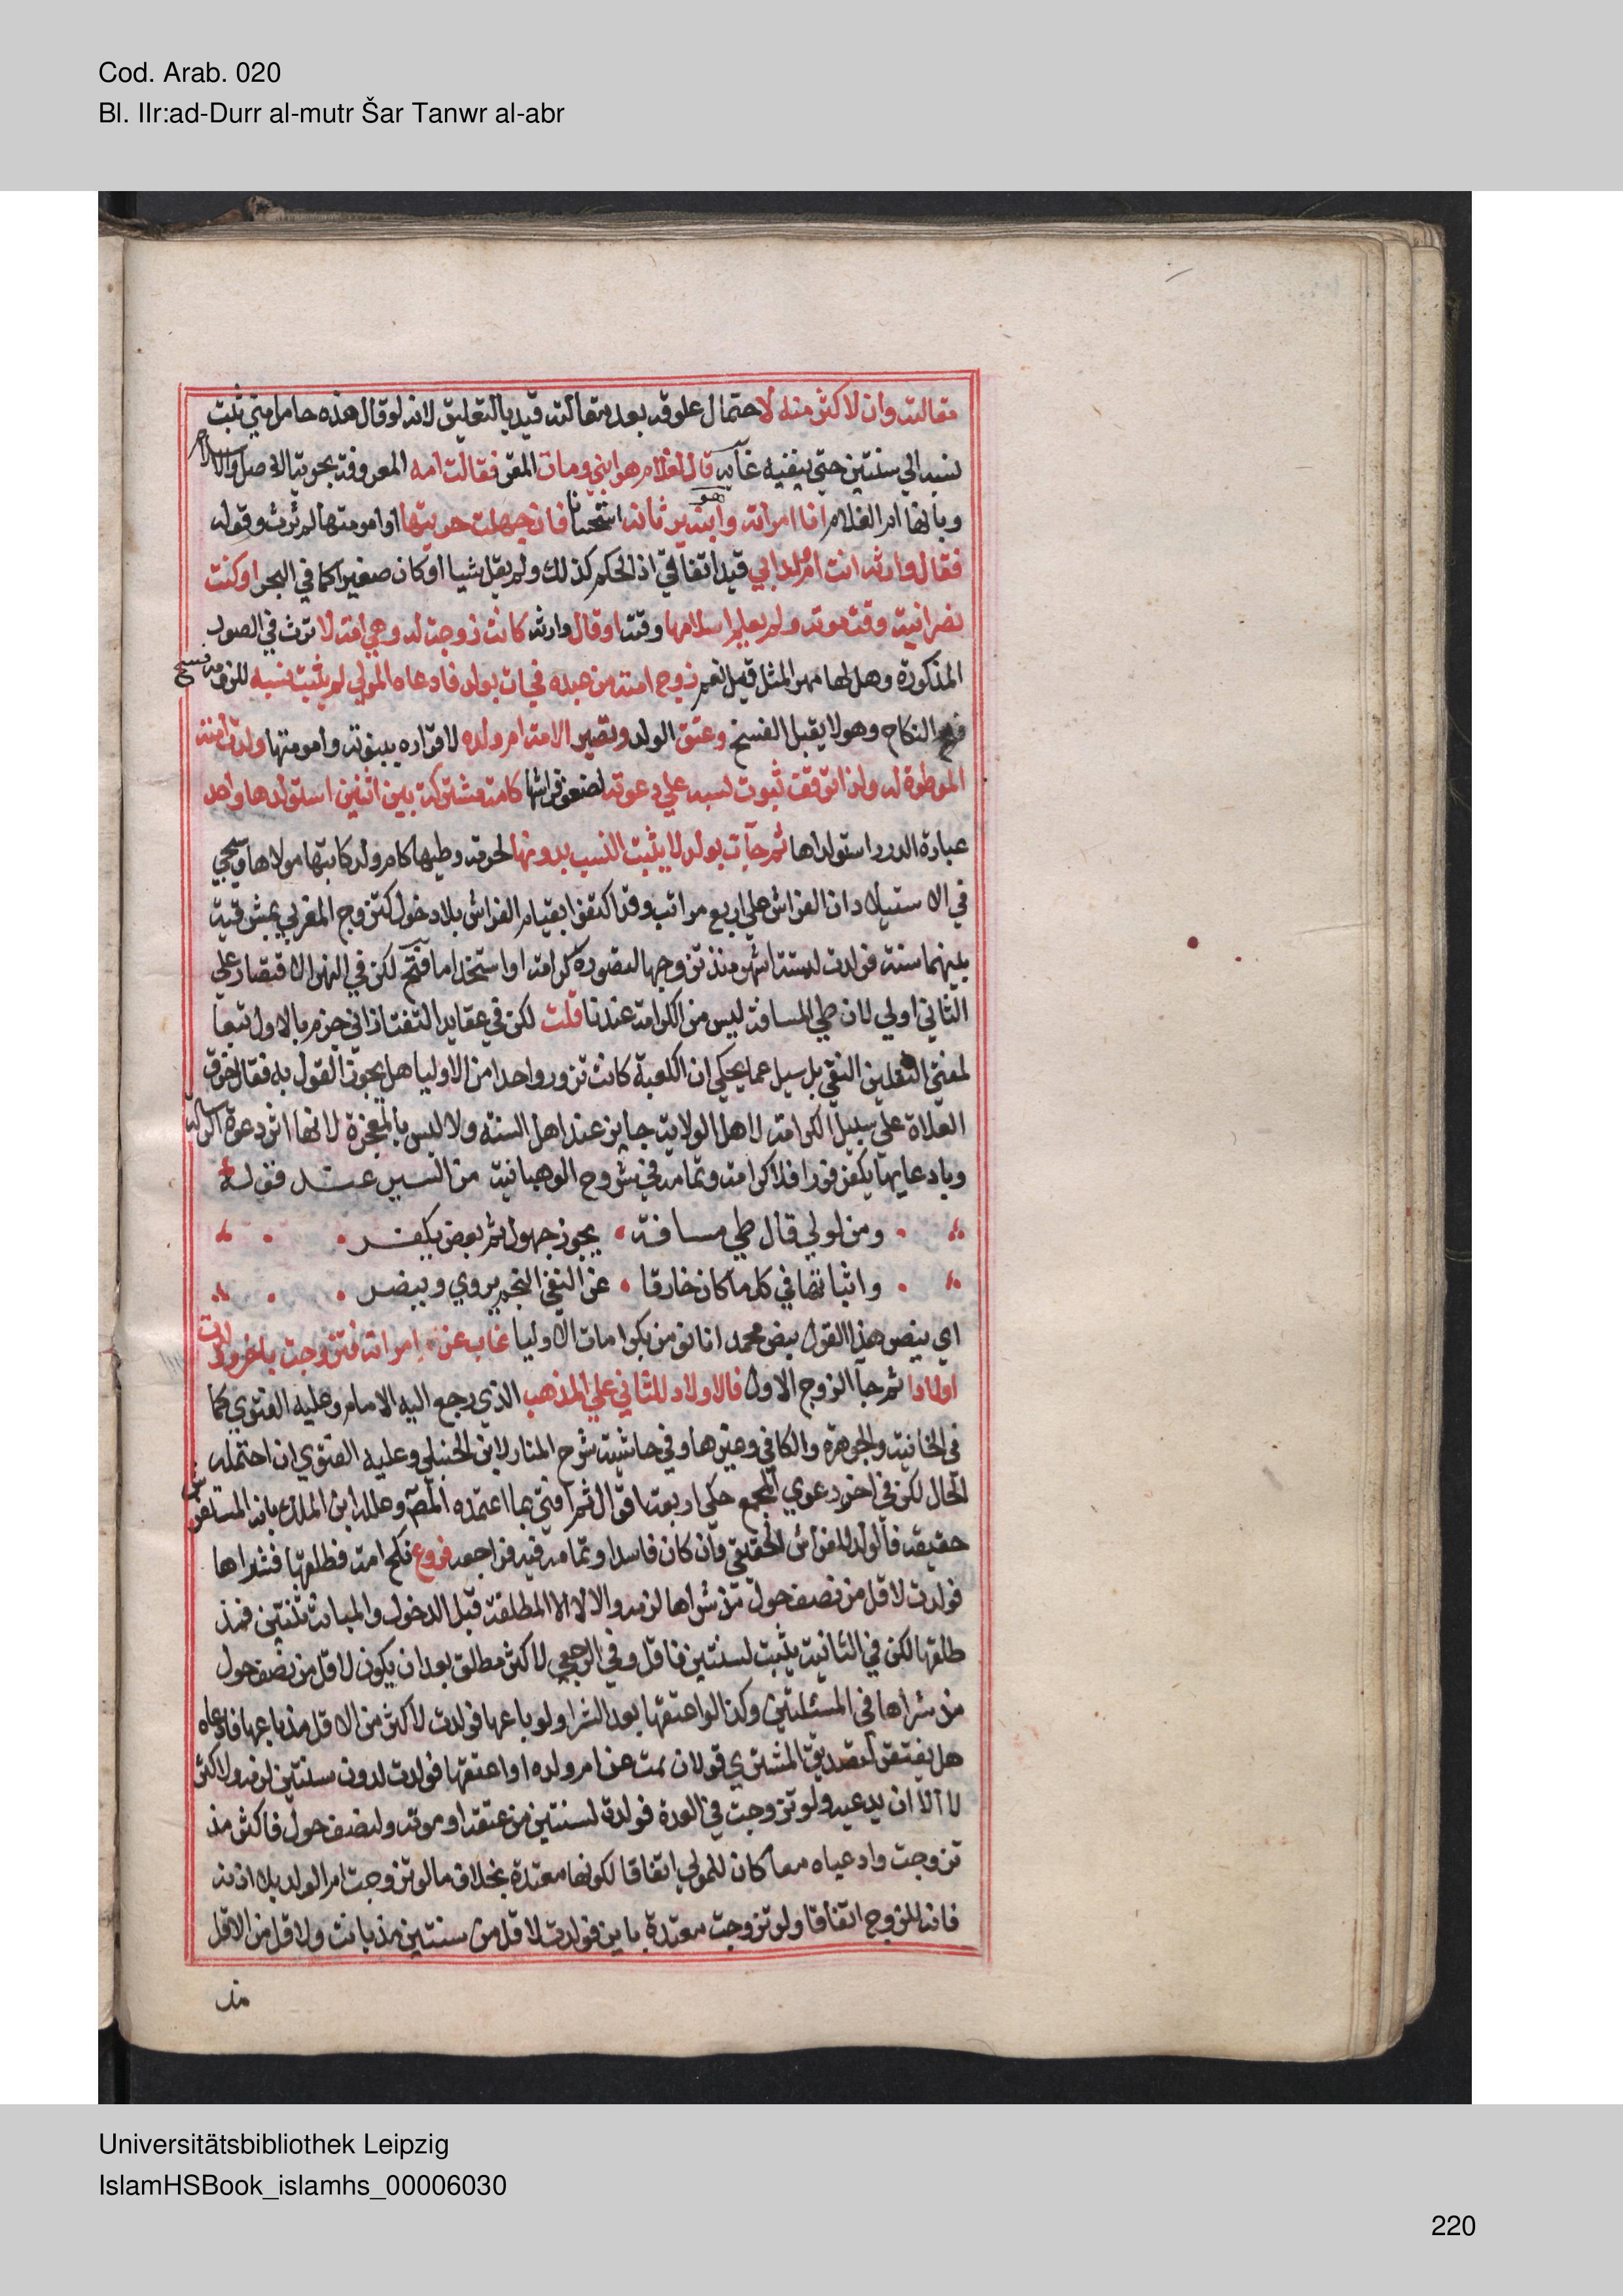 Cod. Arab. 020
Bl. IIr:ad-Durr al-mutr Šar Tanwr al-abr
مقالته وان لاكثر منه لا احتمال علوقه بعد مقالته قيد بالتعليق لانه لو قال هذه حامل مني ثبت
نسبه الي سنتين حتي ينفيه غاية قال لغلام هو ابني ومات المقر فقالت امه المعروفة بحرية الاصل والاسلام
وبانها ام الغلام انا امراته وهو ابنه يرثانه استحسانا فان جهلت حريتها او امومتها لم ترث وقوله
فقال وارثه انت ام ولد ابي قيد اتفاقي اذ الحكم كذلك ولم يقل شيا او كان صغيرا كما في البحر او كنت
نصرانية وقت موته ولم يعلم اسلامها وقته او قال وارثه كانت زوجت له وهي امة لا ترث في الصور
المذكورة وهل لها مهر المثل قيل نعم زوج امته من عبده فجات بولد فادعاه المولي لم يثبت نسبه للزوم فسخ
النكاح وهو لا يقبل الفسخ وعتق الولد وتصير الامة ام ولده لاقراره ببنوته وامومتها ولدت امته
الموطوة له ولدا توقف ثبوت نسبه علي دعوته لضعف فراشها كامة مشتركة بين اثنين استولدها واحد
عبارة الدرر استولداها ثم جات بولد لا يثبت النسب بدونها لحرمة وطيها كام ولد كاتبها مولاها وسيجي
في الاستيلاد ان الفراش علي اربع مراتب وقد اكتفوا بقيام الفراش بلا دخول كتزوج المغربي بمشرقية
بينهما سنة فولدت لستة اشهر منذ تزوجها لتصوره كرامة او استخداما فتح لكن في النهر الاقتصار علي
الثاني اولي لان طي المسافة ليس من الكرامة عندنا قلت لكن في عقايد التفتازاني جزم بالاول تبعا
لمفتي الثقلين النسفي بل سيل عما يحكي ان الكعبة كانت تزور واحدا من الاوليا هل يجوز القول به فقال خرق
العادة علي سبيل الكرامة لاهل الولاية جايز عند اهل السنة ولا لبس بالمعجزة لانها اثر دعوة الرسالة
وبادعايها يكفر فورا فلا كرامة وتمامه في شروح الوهبانية من السير عند قوله
ومن لولي قال طي مسافة يجوز جهول ثم بعض يكفر
واثباتها في كل ما كان خارقا عن النسفي النجم يروي وينصر
اي ينصر هذا القول بنص محمد انا نومن بكرامات الاوليا غاب عن امراته فتزوجت باخر وولدت
اولادا ثم جا الزوج الاول فالاولاد للثاني علي المذهب الذي رجع اليه الامام وعليه الفتوي كما
في الخانية والجوهرة والكافي وغيرها وفي حاشية شرح المنار لابن الحنبلي وعليه الفتوي ان احتمله
الحال لكن في اخر دعوي المجمع حكي اربعة اقوال ثم افتي بما اعتمده المص وعلله ابن الملك بانه المستفرش
حقيقة فالولد للفراش الحقيقي وان كان فاسدا وتمامه فيه فراجعه فروع نكح امة فطلقها فشراها
فولدت لاقل من نصف حول مذ شراها لزمه والا لا الا المطلقة قبل الدخول والمبانة بثنتين فمذ
طلقها لكن في الثانية يثبت لسنتين فاقل وفي الرجعي لاكثر مطلقا بعد ان يكون لاقل من نصف حول
مذ شراها في المسئلتين وكذا لو اعتقها بعد الشرا ولو باعها فولدت لاكثر من الاقل مذ باعها فادعاه
هل يفتقر لتصديق المشتري قولان مت عن ام ولده او اعتقها فولدت لدون سنتين لزمه ولاكثر
لا الا ان يدعيه ولو تزوجت في العدة فولدت لسنتين من عتقه او موته ولنصف حول فاكثر مذ
تزوجت وادعياه معا كان للمولي اتفاقا لكونها معتدة بخلاف ما لو تزوجت ام الولد بلا اذنه
فانه للزوج اتفاقا ولو تزوجت معتدة باين فولدت لاقل من سنتين مذ بانت ولاقل من الاقل
مذ
Universitätsbibliothek Leipzig
IslamHSBook_islamhs_00006030
220